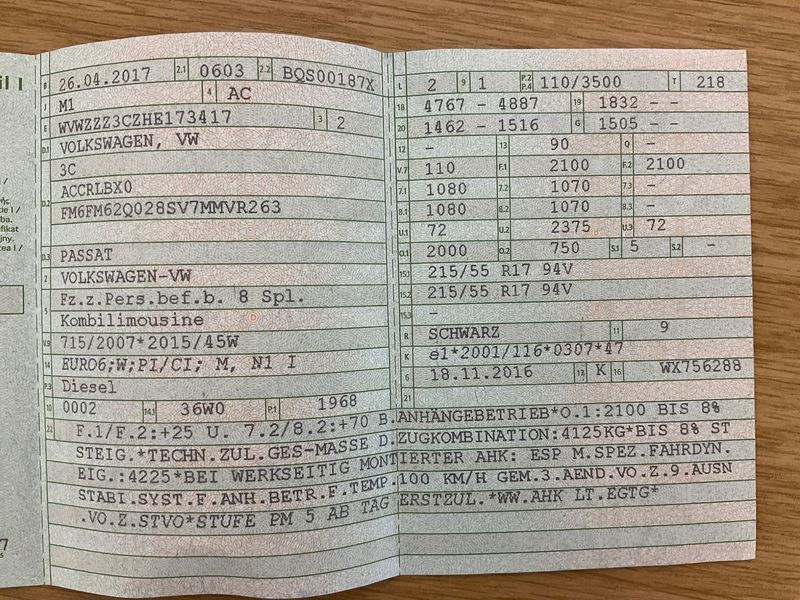 il I
B 26.04.2017 2.1 0603 2.2 BQS00187X
J M1 4 AC
E WVWZZZ3CZHE173417 3 2
D.1 VOLKSWAGEN, VW
3C
D.2 ACCRLBX0
FM6FM62Q028SV7MMVR263
D.3 PASSAT
2 VOLKSWAGEN-VW
5 Fz.z.Pers.bef.b. 8 Spl.
Kombilimousine
V.9 715/2007*2015/45W
14 EURO6;W;PI/CI; M, N1 I
P.3 Diesel
10 0002 14.1 36W0 P.1 1968
L 2 9 1 P.2 P.4 110/3500 T 218
18 4767 - 4887 19 1832 - -
20 1462 - 1516 G 1505 - -
12 - 13 90 Q -
V.7 110 F.1 2100 F.2 2100
7.1 1080 7.2 1070 7.3 -
8.1 1080 8.2 1070 8.3 -
U.1 72 U.2 2375 U.3 72
O.1 2000 O.2 750 S.1 5 S.2 -
15.1 215/55 R17 94V
15.2 215/55 R17 94V
15.3 -
R SCHWARZ 11 9
K e1*2001/116*0307*47
6 18.11.2016 17 K 16 WX756288
21
22 F.1/F.2:+25 U. 7.2/8.2:+70 B.ANHÄNGEBETRIEB*O.1:2100 BIS 8%
STEIG.*TECHN.ZUL.GES-MASSE D.ZUGKOMBINATION:4125KG*BIS 8% ST
EIG.:4225*BEI WERKSEITIG MONTIERTER AHK: ESP M.SPEZ.FAHRDYN.
STABI.SYST.F.ANH.BETR.F.TEMP.100 KM/H GEM.3.AEND.VO.Z.9.AUSN
.VO.Z.STVO*STUFE PM 5 AB TAG ERSTZUL.*WW.AHK LT.EGTG*